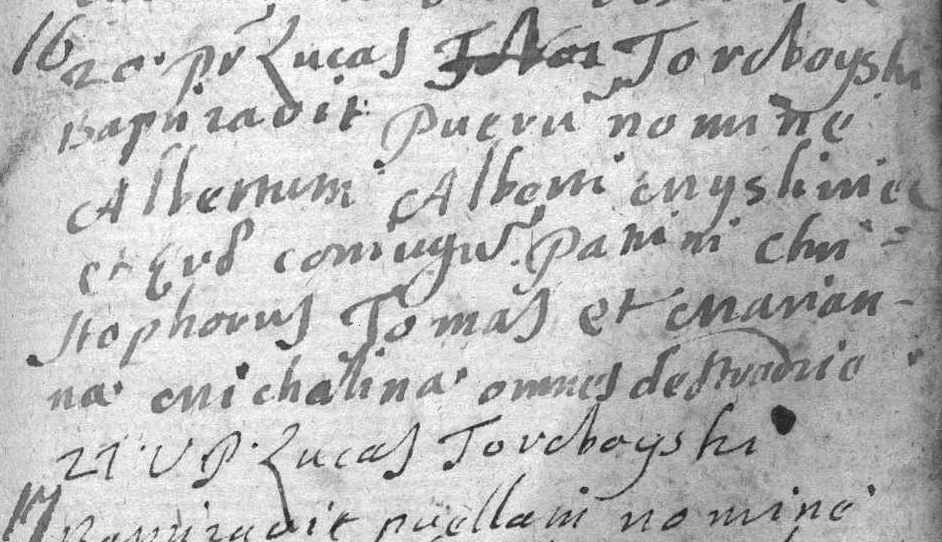 16
20 pr Lucas Torcboyski
Baptizavit Pueru nomine
Albertum Alberti Myslinie
et coniugu Patrini Chri=
stophorus Tomas et Marian-
na Michalina omnes de
21 V P Lucas Torcboyski
17 Baptizavit puellam nomine